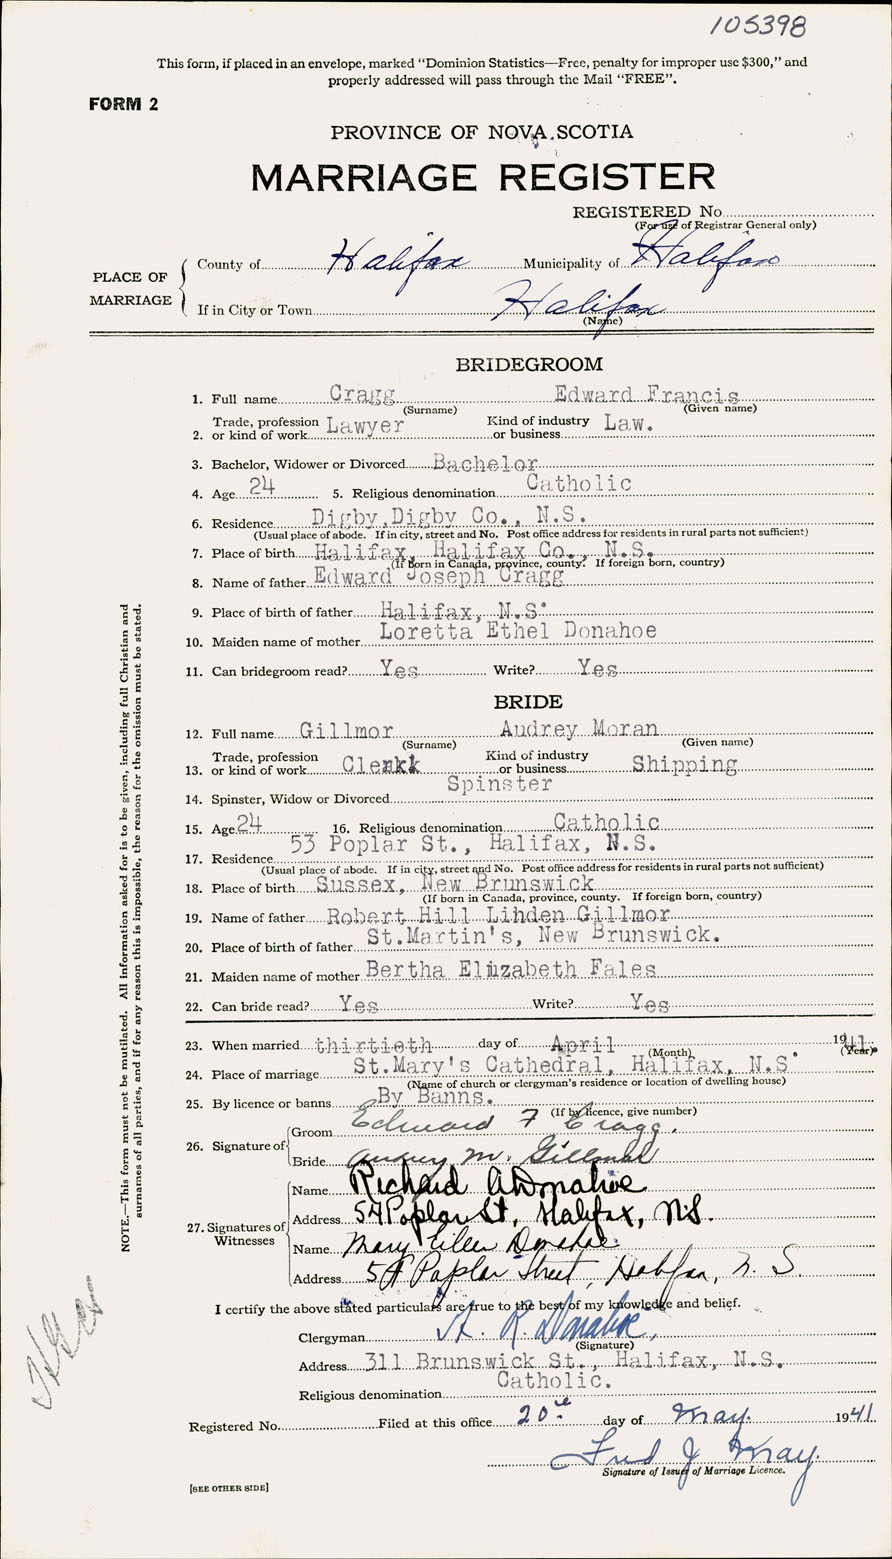 105398
This form, if placed in an envelope, marked "Dominion Statistics—Free, penalty for improper use $300," and
properly addressed will pass through the Mail "FREE".
FORM 2
PROVINCE OF NOVA SCOTIA
MARRIAGE REGISTER
REGISTERED No.
(For use of Registrar General only)
PLACE OF MARRIAGE
County of Halifax Municipality of Halifax
If in City or Town Halifax
(Name)
BRIDEGROOM
1. Full name Cragg Edward Francis
(Surname) (Given name)
2. Trade, profession or kind of work Lawyer Kind of industry or business Law.
3. Bachelor, Widower or Divorced Bachelor
4. Age 24 5. Religious denomination Catholic
6. Residence Digby,Digby Co., N.S.
(Usual place of abode. If in city, street and No. Post office address for residents in rural parts not sufficient)
7. Place of birth Halifax, Halifax Co., N.S.
(If born in Canada, province, county. If foreign born, country)
8. Name of father Edward Joseph Cragg
9. Place of birth of father Halifax, N.S.
10. Maiden name of mother Loretta Ethel Donahoe
11. Can bridegroom read? Yes Write? Yes
BRIDE
12. Full name Gillmor Audrey Moran
(Surname) (Given name)
13. Trade, profession or kind of work Clerk Kind of industry or business Shipping
14. Spinster, Widow or Divorced Spinster
15. Age 24 16. Religious denomination Catholic
17. Residence 53 Poplar St., Halifax, N.S.
(Usual place of abode. If in city, street and No. Post office address for residents in rural parts not sufficient)
18. Place of birth Sussex, New Brunswick
(If born in Canada, province, county. If foreign born, country)
19. Name of father Robert Hill Lihden Gillmor
20. Place of birth of father St.Martin's, New Brunswick.
21. Maiden name of mother Bertha Elizabeth Fales
22. Can bride read? Yes Write? Yes
23. When married thirtieth day of April 1941.
(Month) (Year)
24. Place of marriage St.Mary's Cathedral, Halifax, N.S.
(Name of church or clergyman's residence or location of dwelling house)
25. By licence or banns By Banns.
(If by licence, give number)
26. Signature of Groom Edward F Cragg.
Bride Audrey M. Gillmor
27. Signatures of Witnesses
Name Richard A Donahoe
Address 54 Poplar St, Halifax, N.S.
Name Mary Eileen Donahoe
Address 54 Poplar Street, Halifax, N. S.
I certify the above stated particulars are true to the best of my knowledge and belief.
Clergyman R. Donahoe,
(Signature)
Address 311 Brunswick St., Halifax, N.S.
Religious denomination Catholic.
Registered No. Filed at this office 20 day of May. 1941
Fred J May.
Signature of Issuer of Marriage Licence.
[SEE OTHER SIDE]
NOTE.—This form must not be mutilated. All Information asked for is to be given, including full Christian and
surnames of all parties, and if for any reason this is impossible, the reason for the omission must be stated.